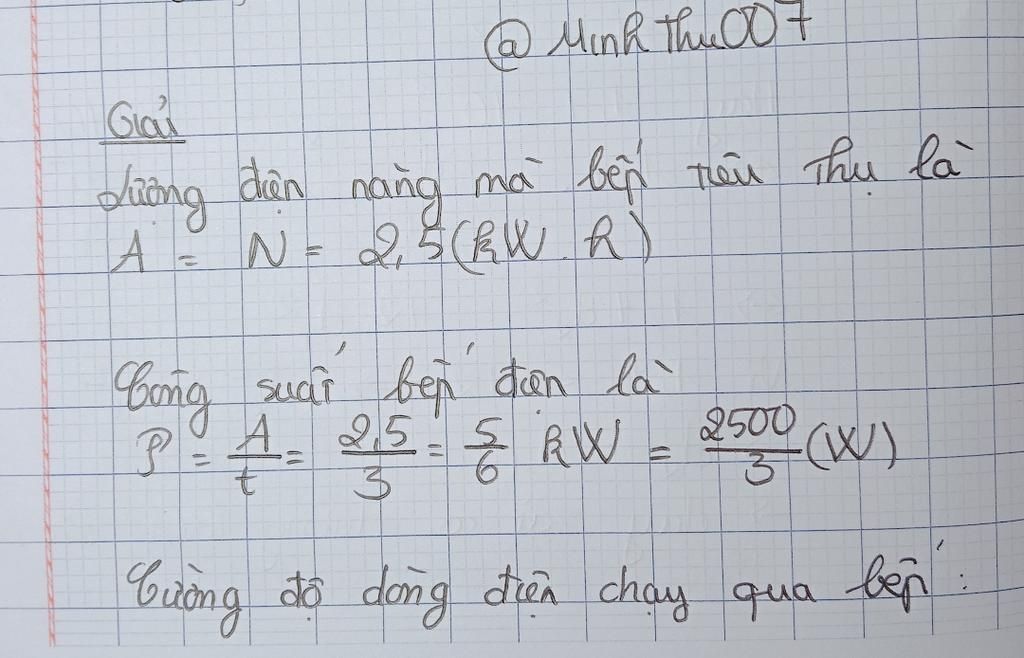 @ MinhThu007
Giải
Lượng điện năng mà bếp tiêu thụ là
A = N = 2,5 (kW.h)
Công suất bếp điện là
P = A/t = 2,5/3 = 5/6 kW = 2500/3 (W)
Cường độ dòng điện chạy qua bếp :